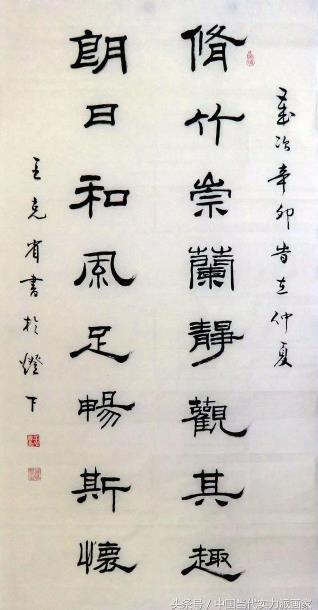 歲次辛卯旹在仲夏
脩竹崇蘭靜觀其趣
朗日和風足暢斯懷
王克省書於燈下
头条号 / 中国当代实力派画家